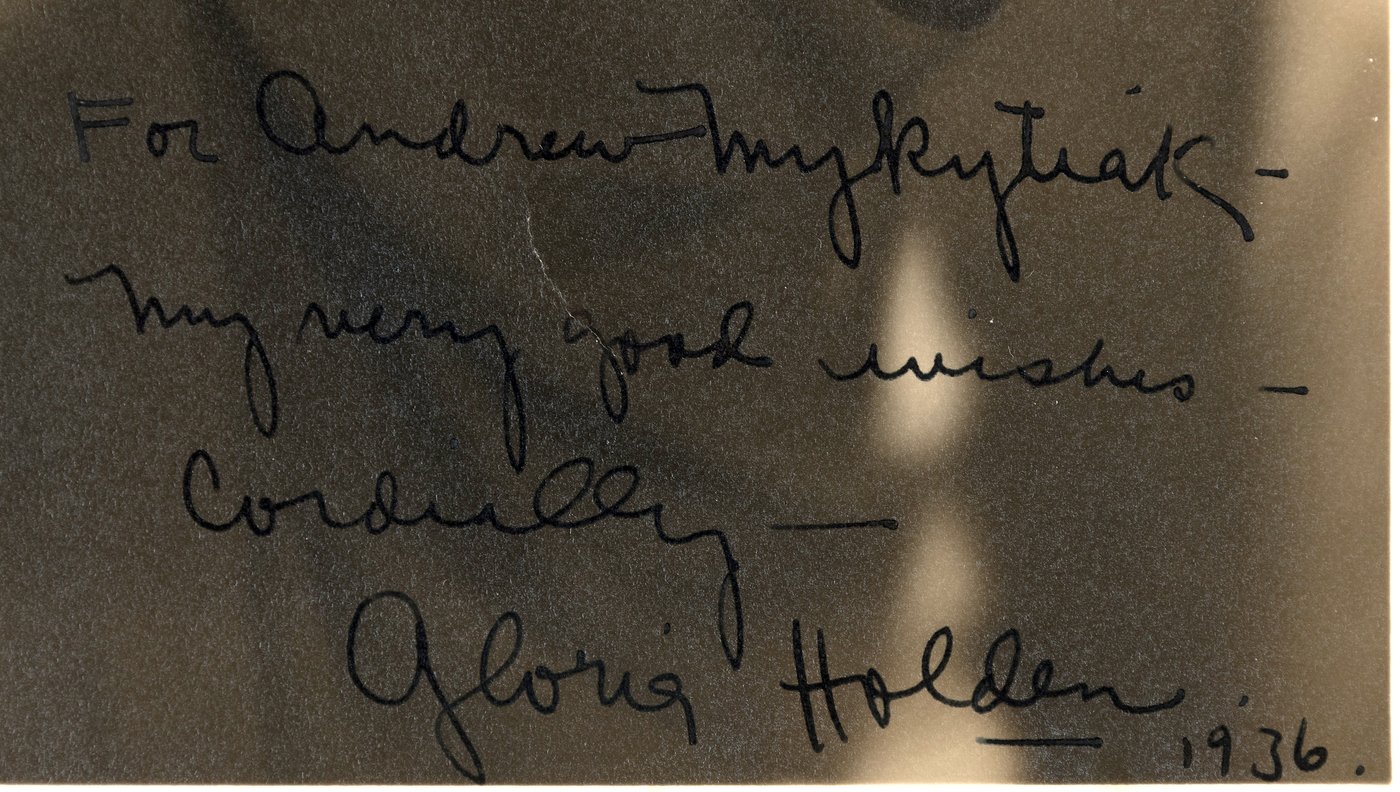 For Andrew Mykytiak -
my very good wishes -
Cordially —
Gloria Holden.
1936.